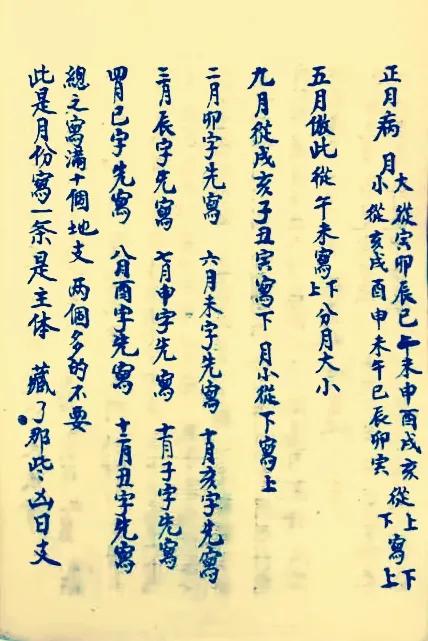 正月病 月
大從寅卯辰巳午未申酉戌亥
小從亥戌酉申未午巳辰卯寅
從上下寫下上
五月倣此從午未寫上下分月大小
九月從戌亥子丑寅寫下 月小從下寫上
二月卯字先寫 六月未字先寫 十月亥字先寫
三月辰字先寫 七月申字先寫 十一月子字先寫
四月巳字先寫 八月酉字先寫 十二月丑字先寫
總之寫满十個地支 两個多的不要
此是月份寫一条是主体 藏了那些凶日支